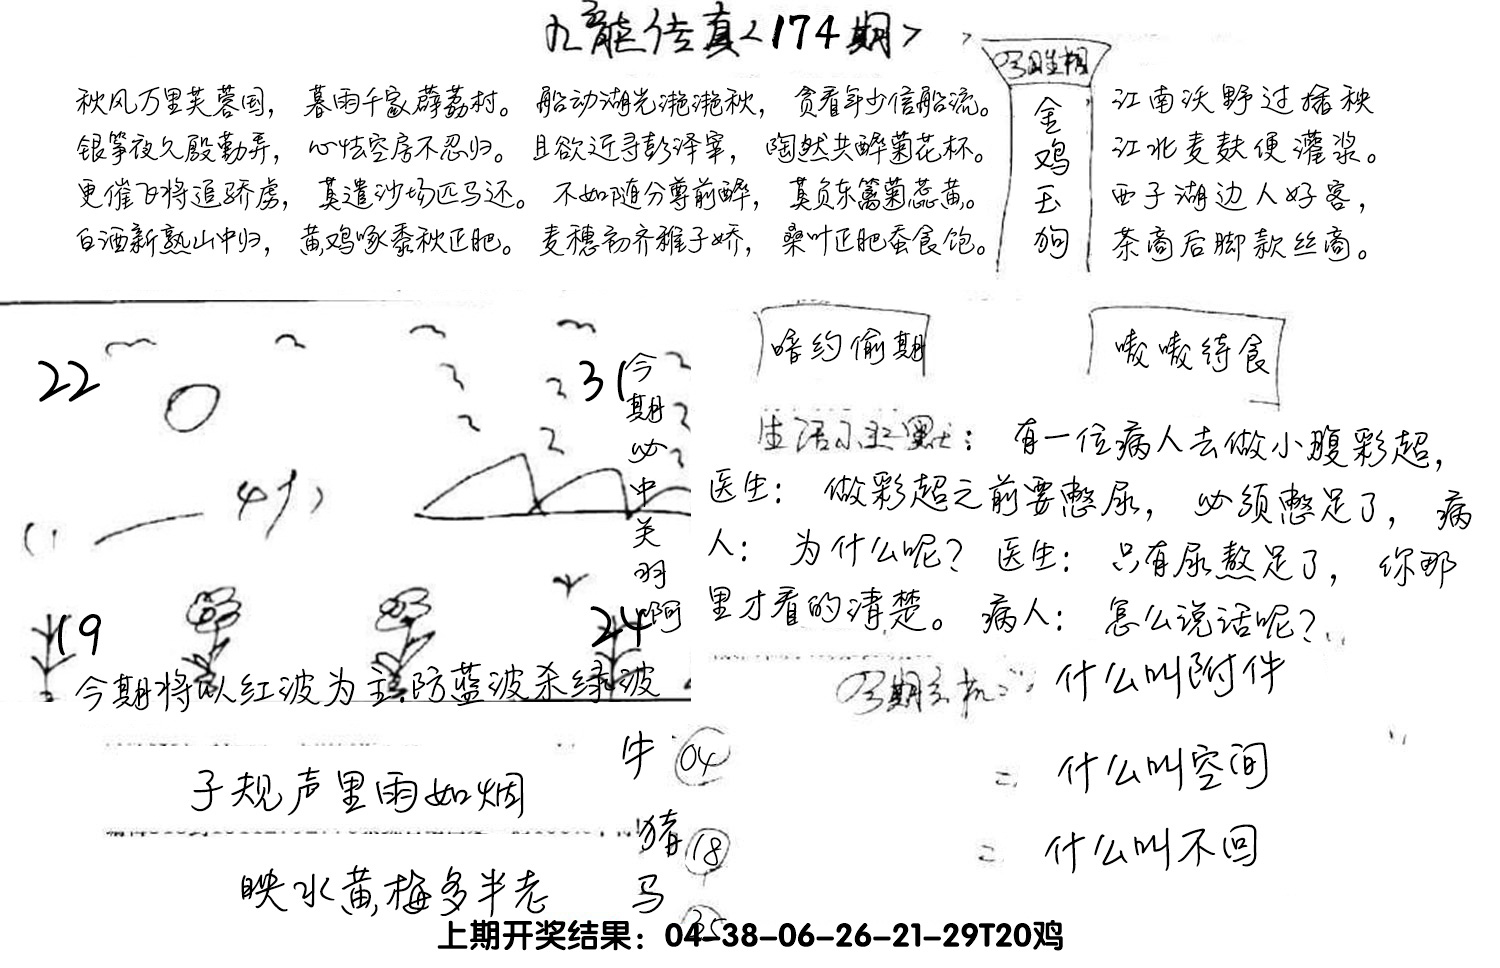 九龙传真<174期>
秋风万里芙蓉国，暮雨千家薜荔村。船动湖光滟滟秋，贪看年少信船流。
银筝夜久殷勤弄，心怯空房不忍归。且欲近寻彭泽宰，陶然共醉菊花杯。
更催飞将追骄虏，莫遣沙场匹马还。不如随分尊前醉，莫负东篱菊蕊黄。
白酒新熟山中归，黄鸡啄黍秋正肥。麦穗初齐稚子娇，桑叶正肥蚕食饱。
今期生相
金
鸡
玉
狗
江南沃野过插秧
江北麦麸便灌浆。
西子湖边人好客，
茶商后脚款丝商。
22
31
今
期
必
中
关
羽
啊
19
24
今期将以红波为主防蓝波杀绿波
暗约偷期
嗷嗷待食
生活小幽默：有一位病人去做小腹彩超，
医生：做彩超之前要憋尿，必须憋足了，病
人：为什么呢？医生：只有尿熬足了，你那
里才看的清楚。病人：怎么说话呢？
今期玄机：什么叫附件
= 什么叫空间
= 什么叫不回
子规声里雨如烟
映水黄梅多半老
牛 04
猪 18
马 35
上期开奖结果：04-38-06-26-21-29T20鸡